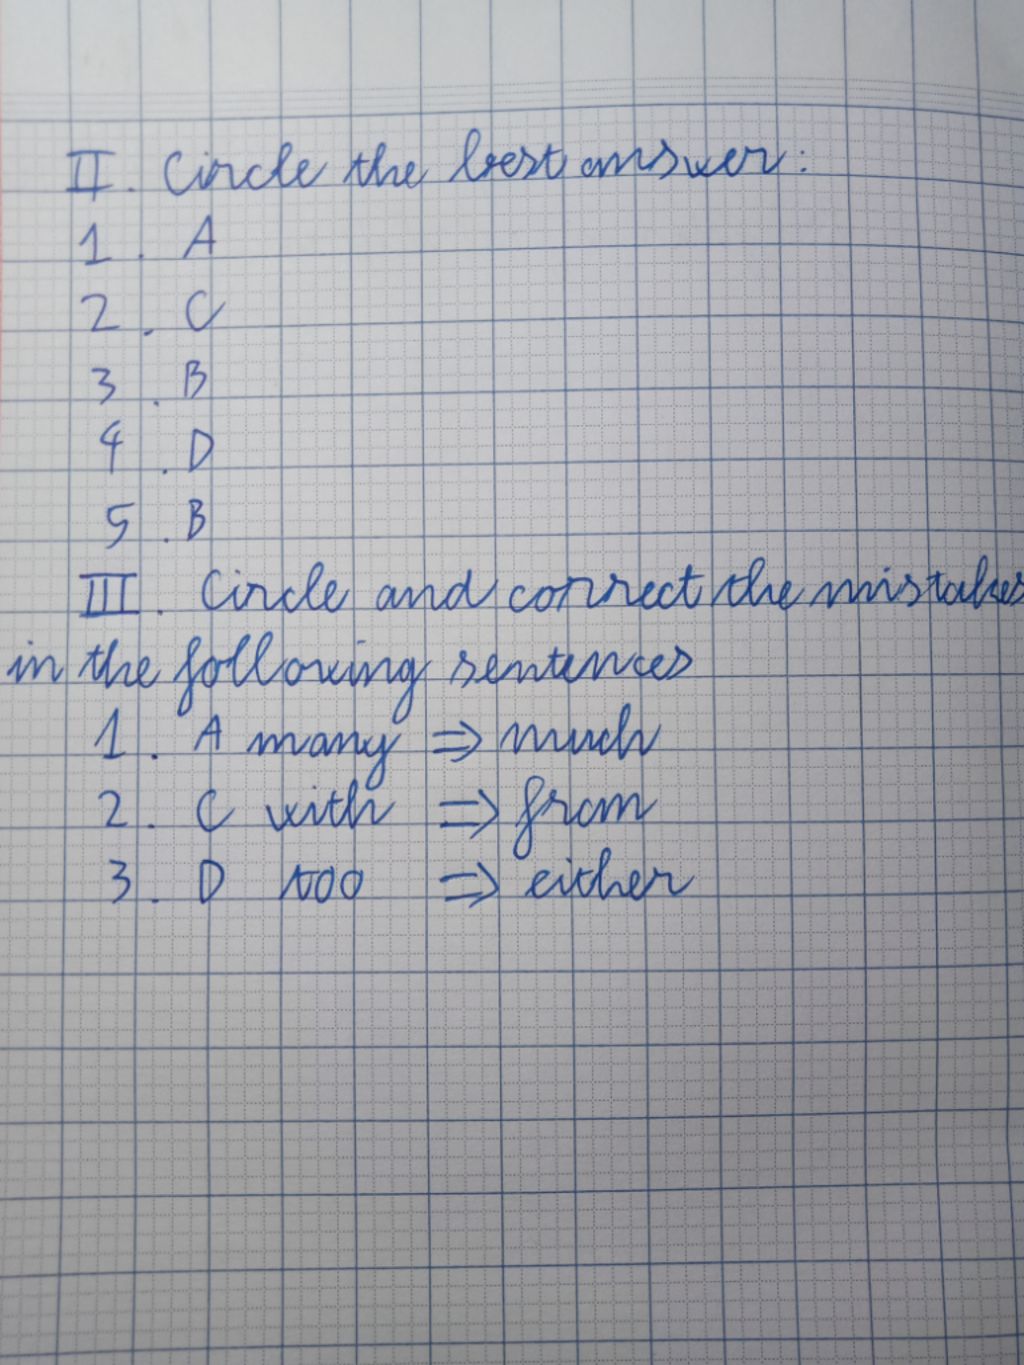 II. Circle the best answer:
1. A
2. C
3. B
4. D
5. B
III. Circle and correct the mistakes
in the following sentences
1. A many ⇒ much
2. C with ⇒ from
3. D too ⇒ either